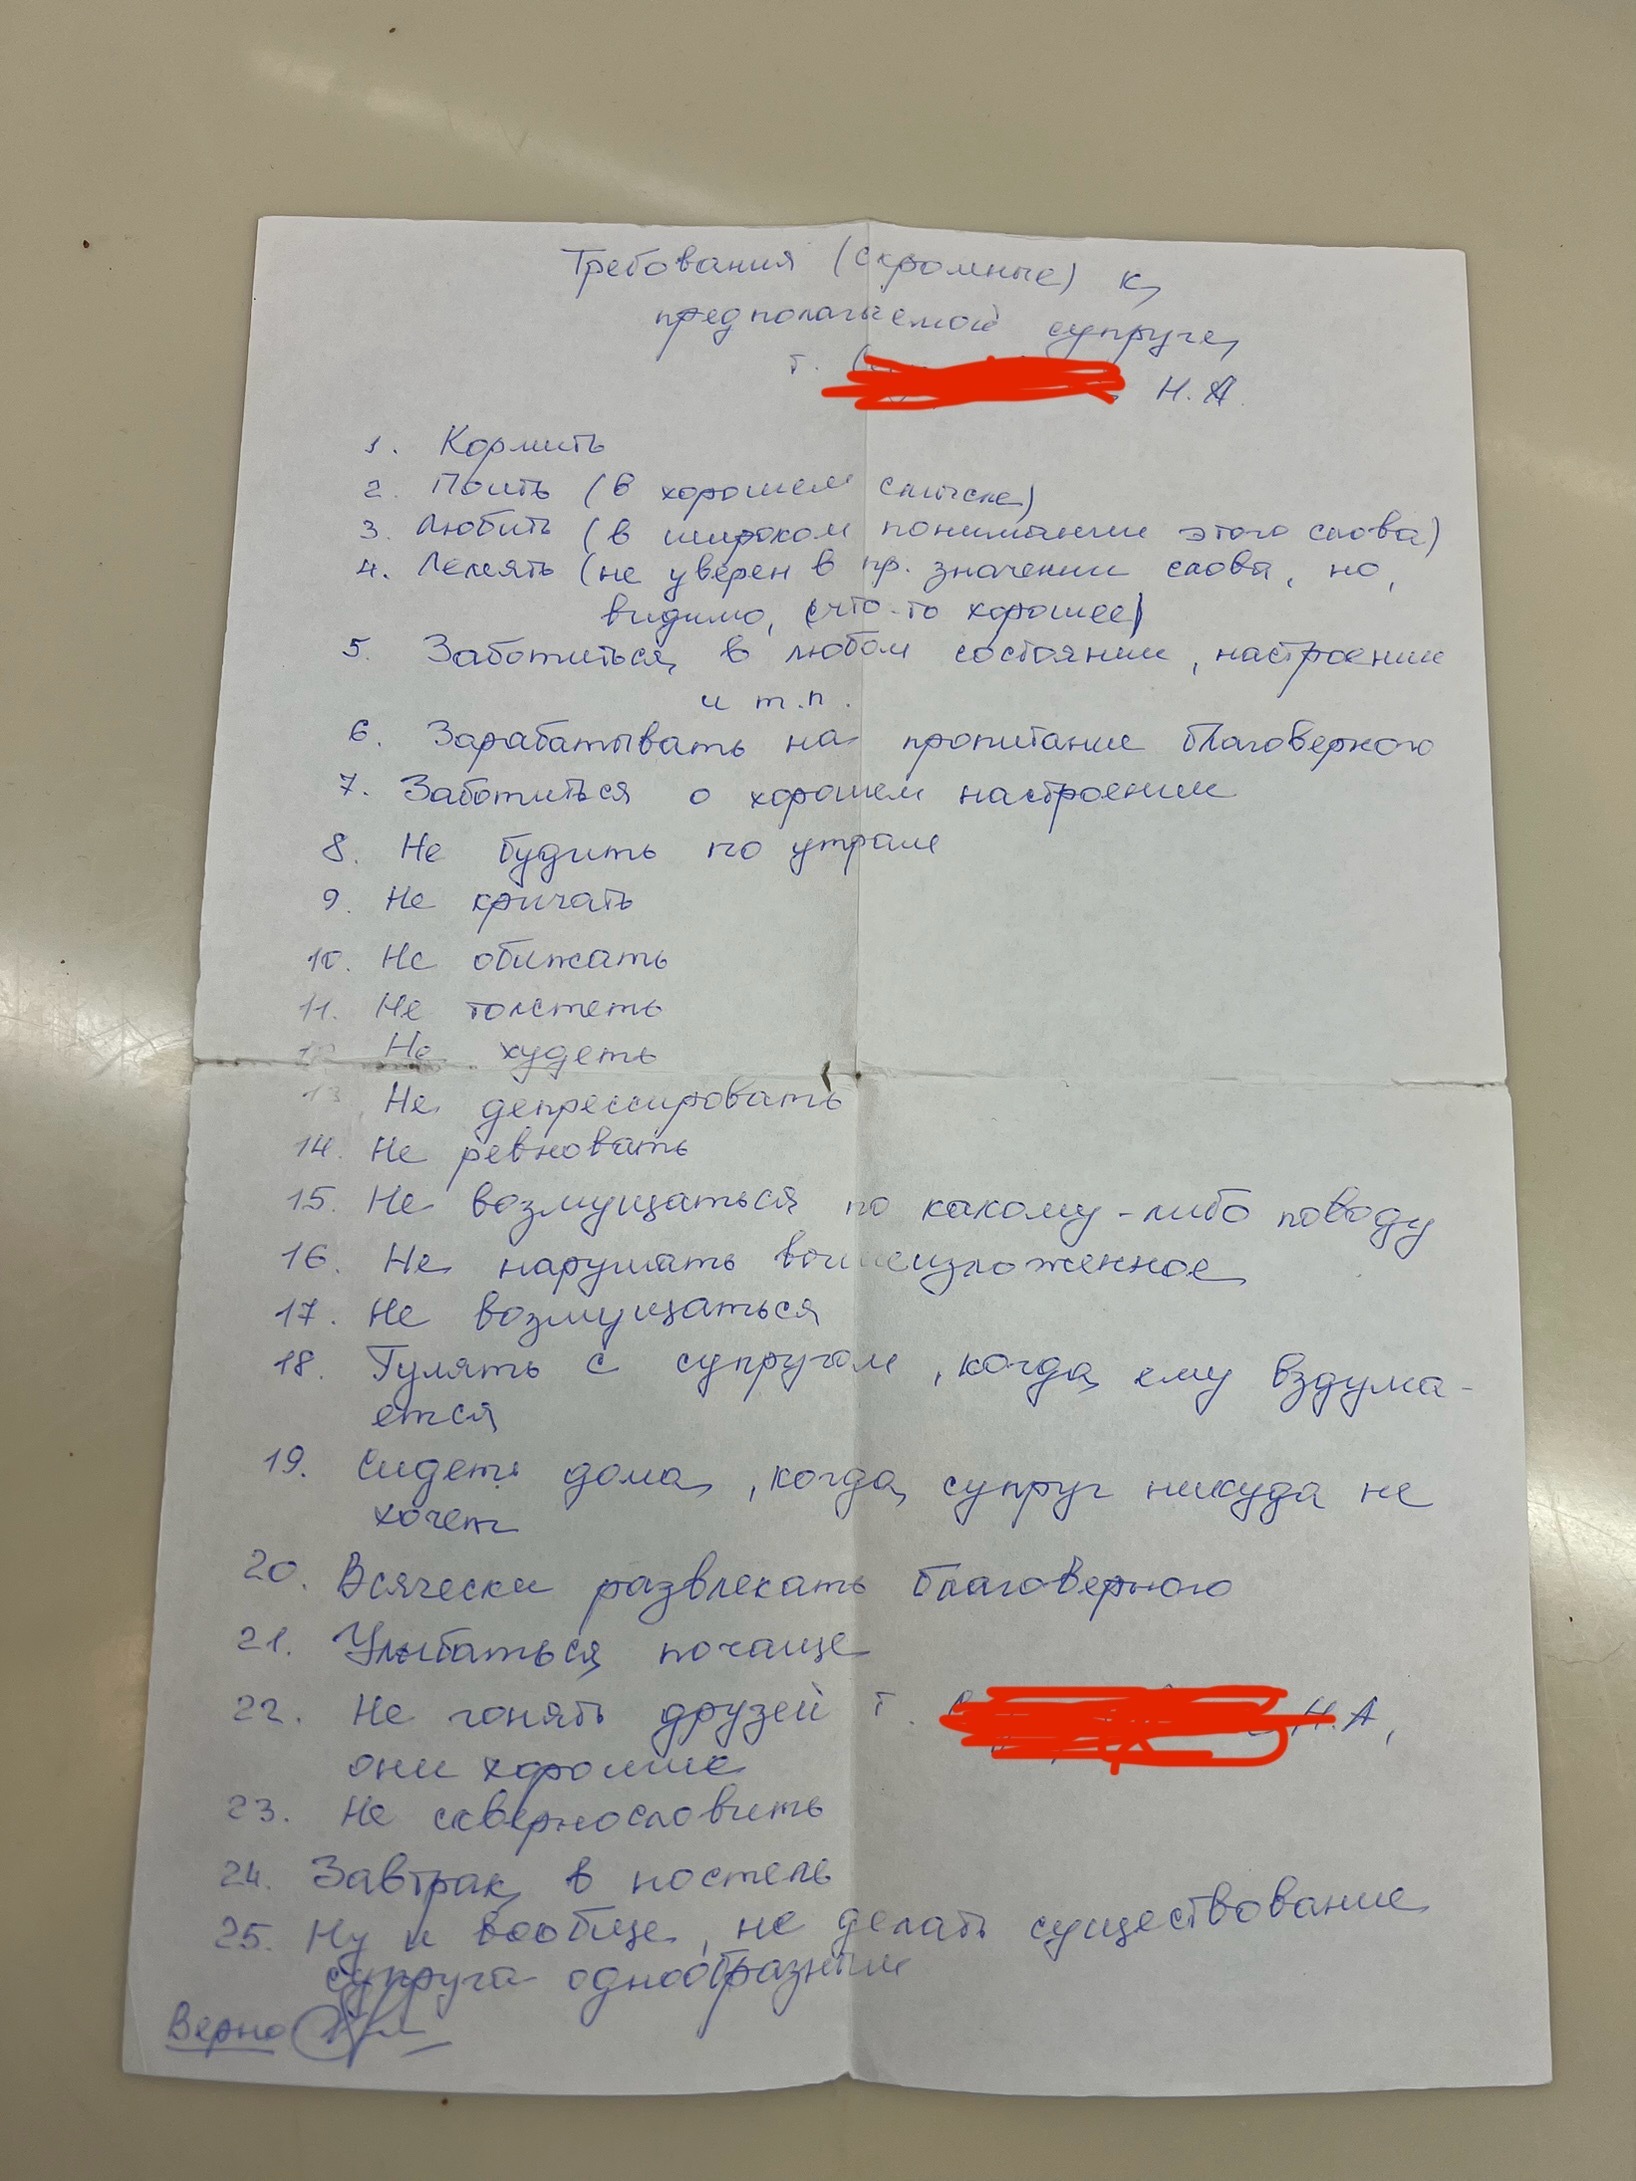 Требования (скромные) к
предполагаемой супруге
г. Н.А.
1. Кормить
2. Поить (в хорошем смысле)
3. Любить (в широком понимании этого слова)
4. Лелеять (не уверен в пр. значении слова, но,
видимо, что-то хорошее)
5. Заботиться в любом состоянии, настроении
и т.п.
6. Зарабатывать на пропитание благоверного
7. Заботиться о хорошем настроении
8. Не будить по утрам
9. Не кричать
10. Не обижать
11. Не толстеть
12 Не худеть
13 Не депрессировать
14. Не ревновать
15. Не возмущаться по какому-либо поводу
16. Не нарушать вышеизложенное
17. Не возмущаться
18. Гулять с супругом, когда ему вздума-
ется
19. Сидеть дома, когда супруг никуда не
хочет
20. Всячески развлекать благоверного
21. Улыбаться почаще
22. Не гонять друзей г. Н.А,
они хорошие
23. Не сквернословить
24. Завтрак в постель
25. Ну и вообще, не делать существование
супруга однообразным
Верно